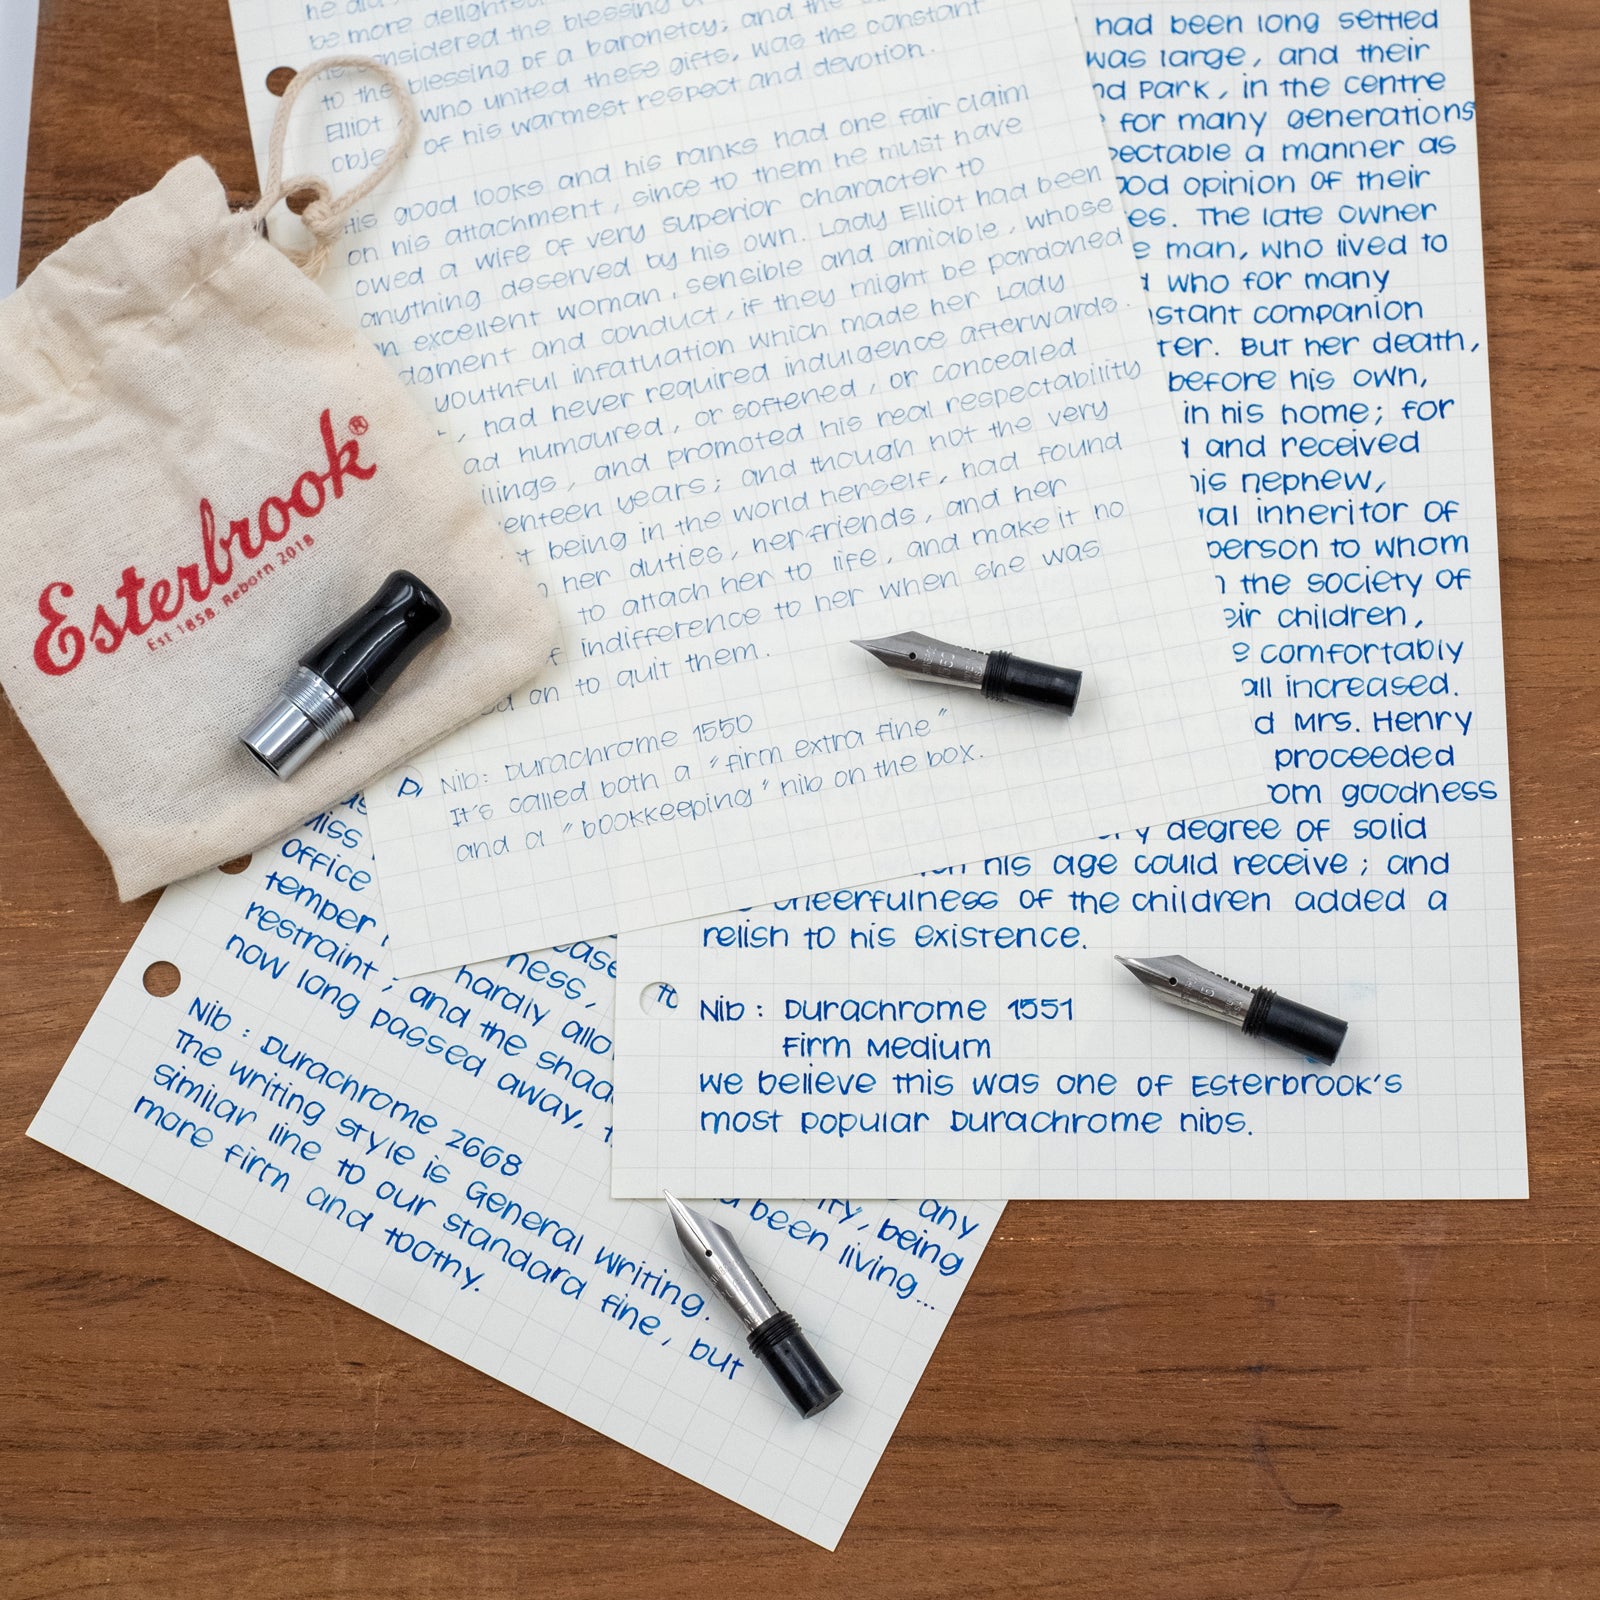 be more delighted
he considered the blessing of
to the blessing of a baronetcy; and the
Elliot, who united these gifts, was the constant
object of his warmest respect and devotion.
His good looks and his ranks had one fair claim
on his attachment, since to them he must have
owed a wife of very superior character to
anything deserved by his own. Lady Elliot had been
an excellent woman, sensible and amiable, whose
dgment and conduct, if they might be pardoned
youthful infatuation which made her Lady
, had never required indulgence afterwards.
ad humoured, or softened, or concealed
ilings, and promoted his real respectability
enteen years; and though not the very
t being in the world herself, had found
her duties, her friends, and her
to attach her to life, and make it no
f indifference to her when she was
d on to quit them.
Nib: Durachrome 1550
It's called both a "firm extra fine"
and a "bookkeeping" nib on the box.
had been long settled
was large, and their
nd Park, in the centre
for many generations
pectable a manner as
ood opinion of their
es. The late owner
e man, who lived to
d who for many
nstant companion
ter. But her death,
before his own,
in his home; for
d and received
his nephew,
al inheritor of
person to whom
n the society of
eir children,
e comfortably
all increased.
d Mrs. Henry
proceeded
om goodness
y degree of solid
his age could receive; and
cheerfulness of the children added a
relish to his existence.
Nib: Durachrome 1551
Firm Medium
We believe this was one of Esterbrook's
most popular Durachrome nibs.
Esterbrook®
Est 1858. Reborn 2018
Miss
office
temper
restraint; and the shad
now long passed away,
ease
ness,
hardly allo
ity, being any
been living...
Nib: Durachrome 2668
The writing style is General Writing.
similar line to our standard fine, but
more firm and toothy.